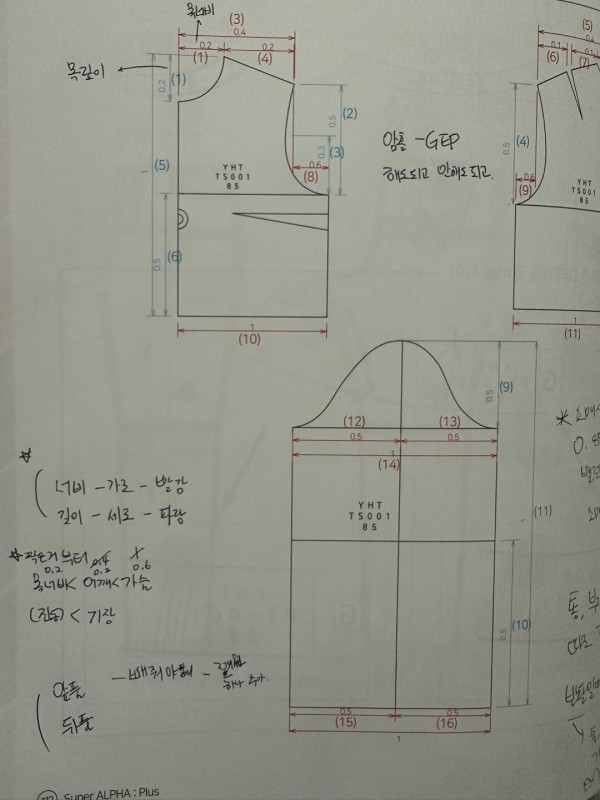 목너비
(3)
0.4
(5)
0.2
0.2
(1)
(4)
0.1
(6)
(7)
목깊이
0.2
(1)
0.5
(2)
(4)
0.5
암홀 - GEP
해도되고 안해도되고.
1
(5)
0.3
(3)
0.6
(8)
0.6
(9)
YHT
TS001
85
YHT
TS001
85
0.5
(6)
1
(10)
1
(11)
0.5
(9)
(12)
(13)
0.5
0.5
1
(14)
너비 - 가로 - 빨강
길이 - 세로 - 파랑
YHT
TS001
85
1
(11)
작은거부터
0.4
0.2
0.2
0.6
목너비< 어깨<가슴
< 기장
0.5
(10)
앞품
뒤품
하나 추가.
0.5
0.5
(15)
(16)
1
Super ALPHA : Plus